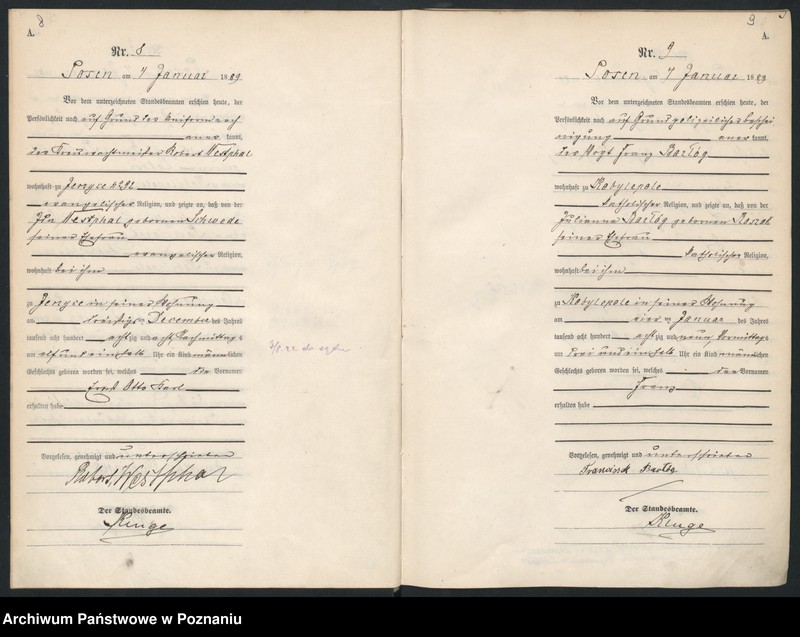 8
A.
Nr. 8
Posen am 7 Januar 1889
Vor dem unterzeichneten Standesbeamten erschien heute, der
Persönlichkeit nach auf Grund der Uniform
aner kannt,
Robert Westphal
wohnhaft zu Jerzyce
evangelischer Religion, und zeigte an, daß von der
Westphal geborenen Schwede
seiner Ehefrau
evangelischer Religion,
wohnhaft bei ihm
zu Jerzyce in seiner Wohnung
am dreißigsten Dezember des Jahres
tausend acht hundert achtzig und acht Nachmittags
um elf und einhalb Uhr ein Kind männlichen
Geschlechts geboren worden sei, welches die Vornamen
Otto Karl
erhalten habe
Vorgelesen, genehmigt und unterschrieben
Robert Westphal
Der Standesbeamte.
Kluge
9
A.
Nr. 9
Posen am 7 Januar 1889
Vor dem unterzeichneten Standesbeamten erschien heute, der
Persönlichkeit nach auf Grund polizeilicher Beschei
nigung aner kannt,
der Vogt Franz Bartög
wohnhaft zu Kobylepole
katholischer Religion, und zeigte an, daß von der
Julianna Bartög geborenen
seiner Ehefrau
katholischer Religion,
wohnhaft bei ihm
zu Kobylepole in seiner Wohnung
am vier ten Januar des Jahres
tausend acht hundert achtzig und neun, Vormittags
um drei und einhalb Uhr ein Kind männlichen
Geschlechts geboren worden sei, welches den Vornamen
Franz
erhalten habe
Vorgelesen, genehmigt und unterschrieben
Der Standesbeamte.
Kluge
Archiwum Państwowe w Poznaniu